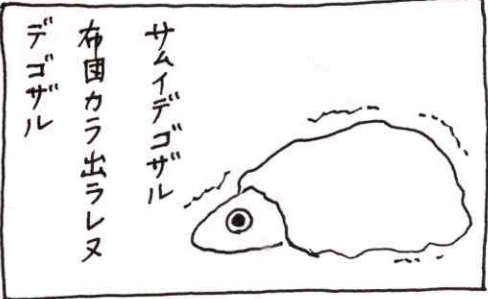 サムイデゴザル
布団カラ出ラレヌ
デゴザル